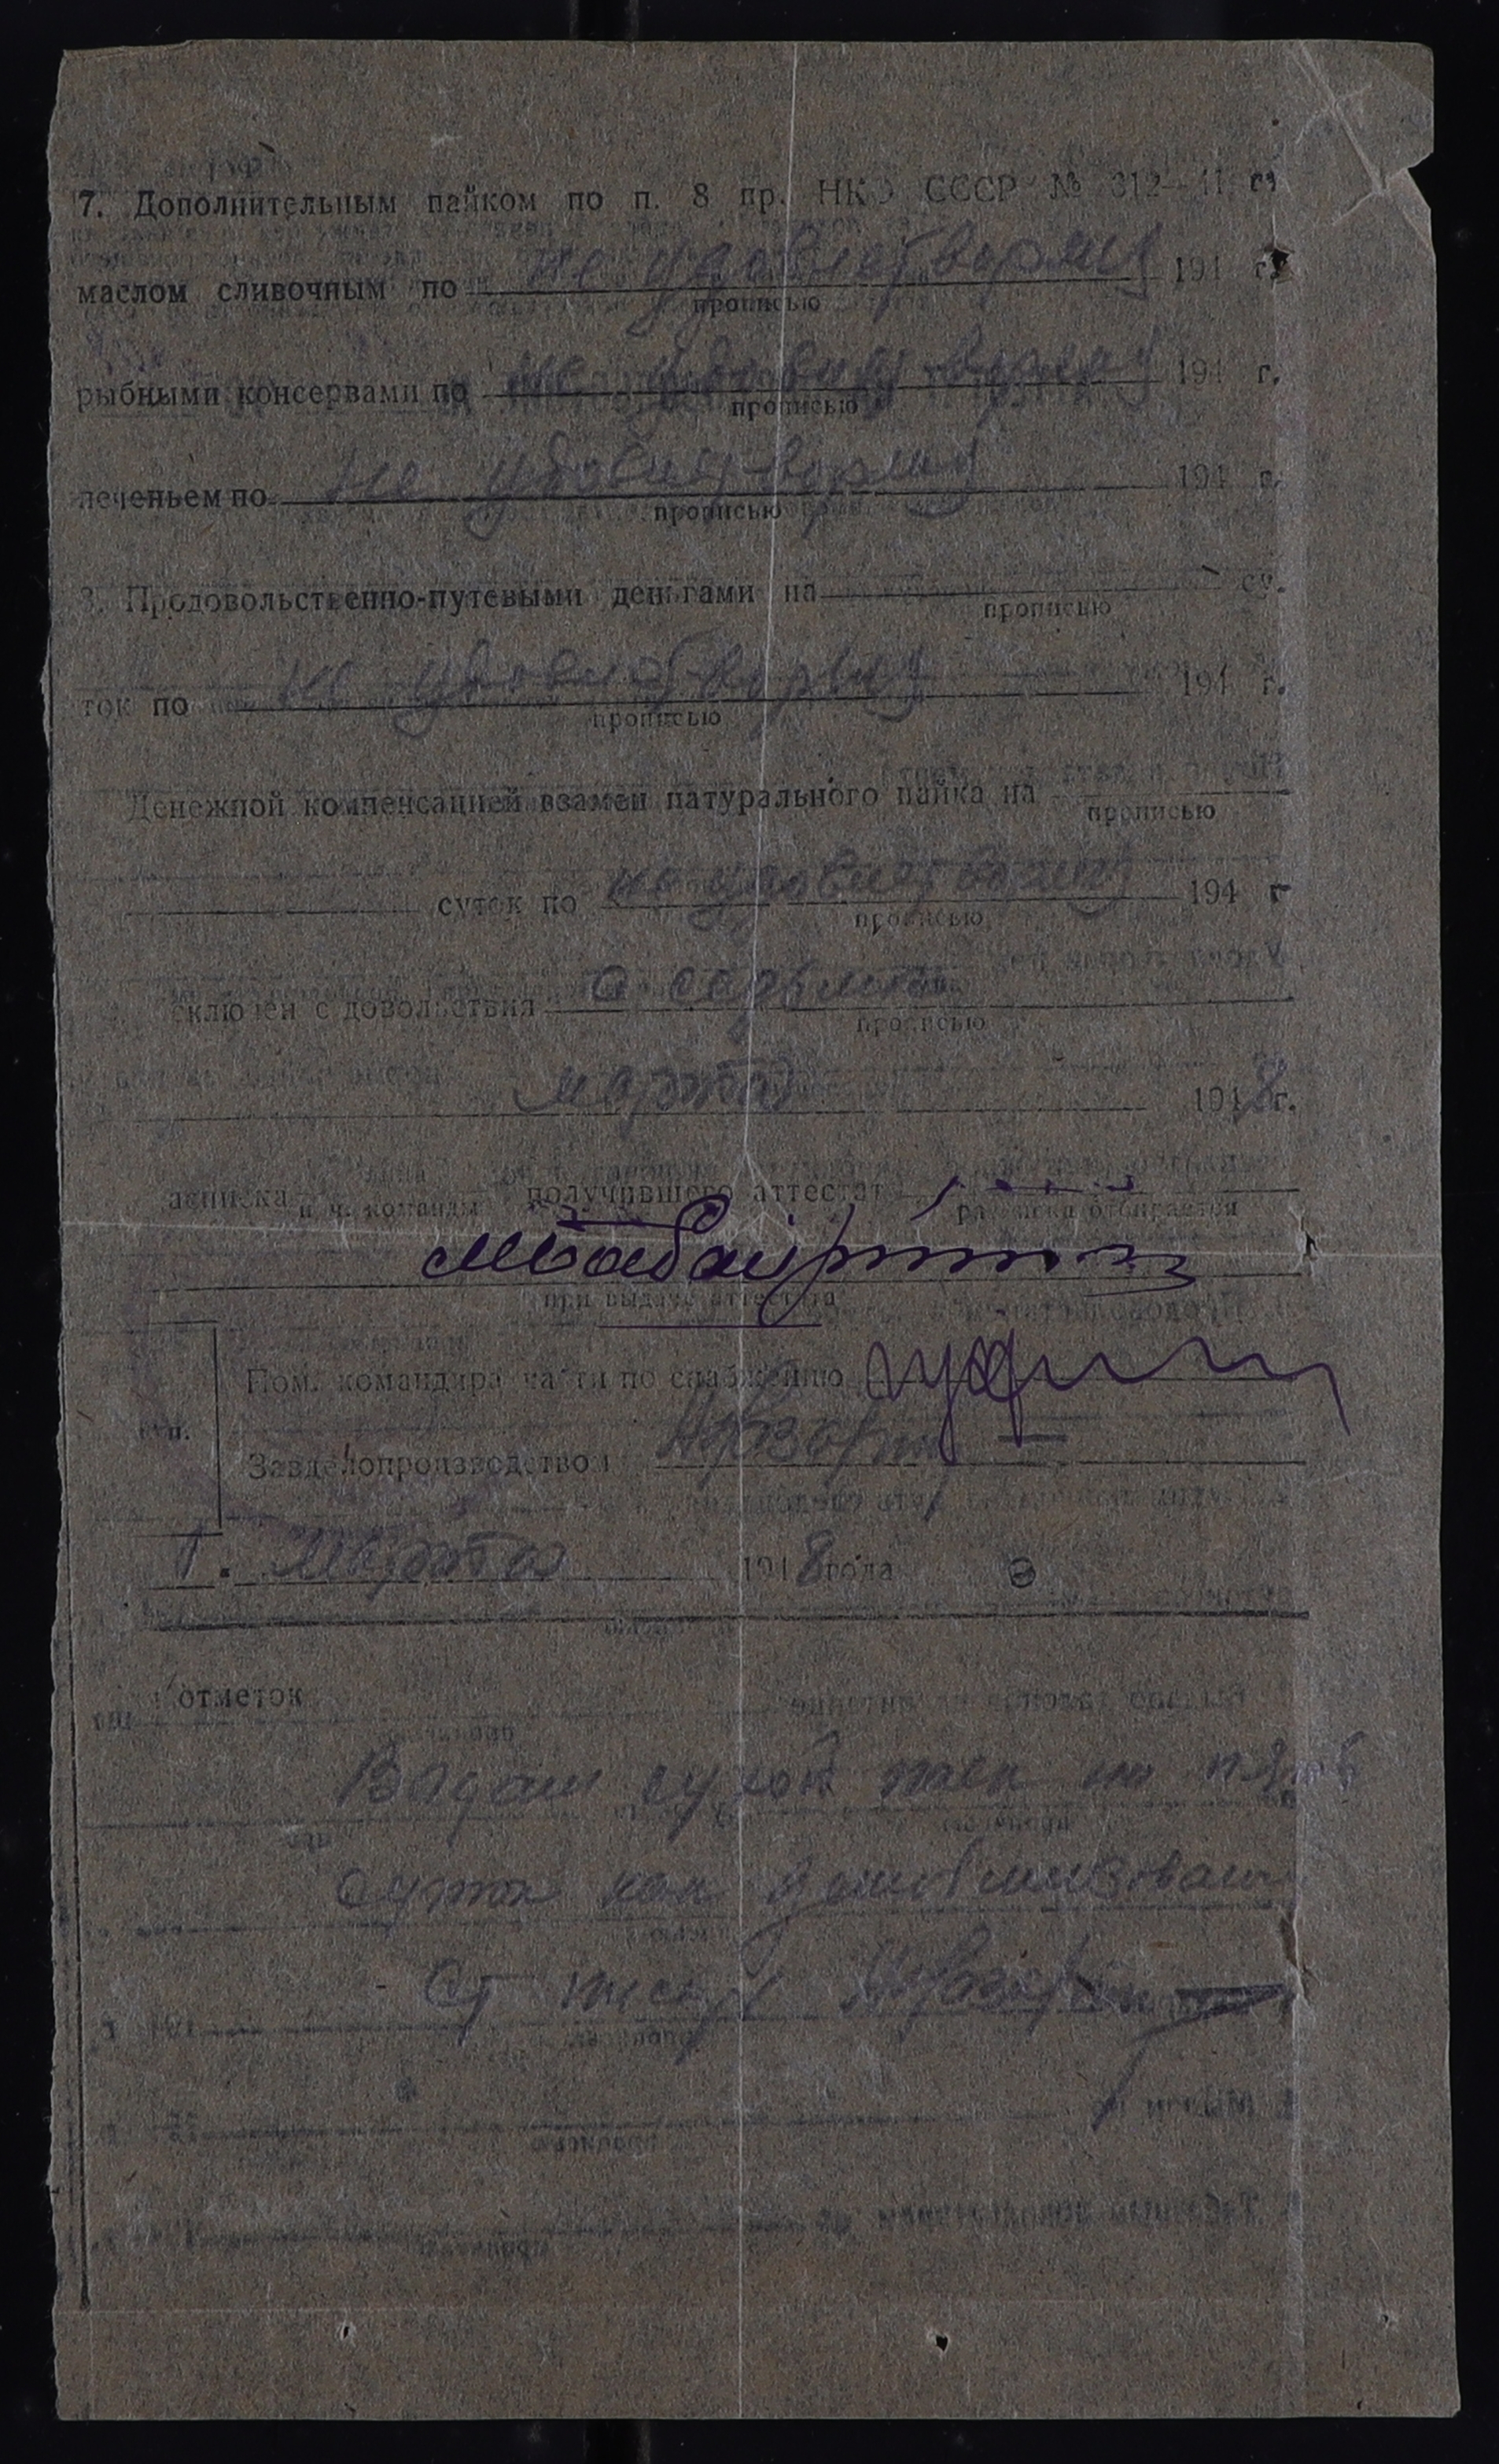 7. Дополнительным пайком по п. 8 пр. НКО СССР № 312—41 г.
маслом сливочным по не удовлетворялся 194 г.
прописью
рыбными консервами по не удовлетворялся 194 г.
прописью
печеньем по не удовлетворялся 194 г.
прописью
8. Продовольственно-путевыми деньгами на су-
прописью
ток по не удовлетворялся 194 г.
прописью
Денежной компенсацией взамен натурального пайка на
прописью
суток по не удовлетворялся 194 г
прописью
сключен с довольствия с седьмого
прописью
марта 1948 г.
асписка получившего аттестат
н-ч. команды расписка отбирается
при выдаче аттестата
Пом. командира части по снабжению
Завделопроизводством
марта 1948 года
отметок
Выдан сухой паек на пять
суток как демобилизован
Ст писарь